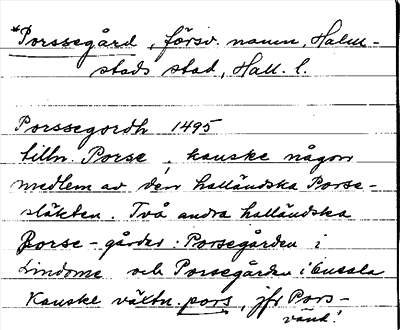 *Porssegård, försv. namn, Halm-
stads stad, Hall. l.
Porssegordh 1495
tilln. Porse, kanske någon
medlem av den halländska Porse-
släkten. Två andra halländska
Porse-gårdar: Porsegården i
Lindome och Porsegården i Onsala
Kanske växtn. pors, jfr Pors-
vänd!